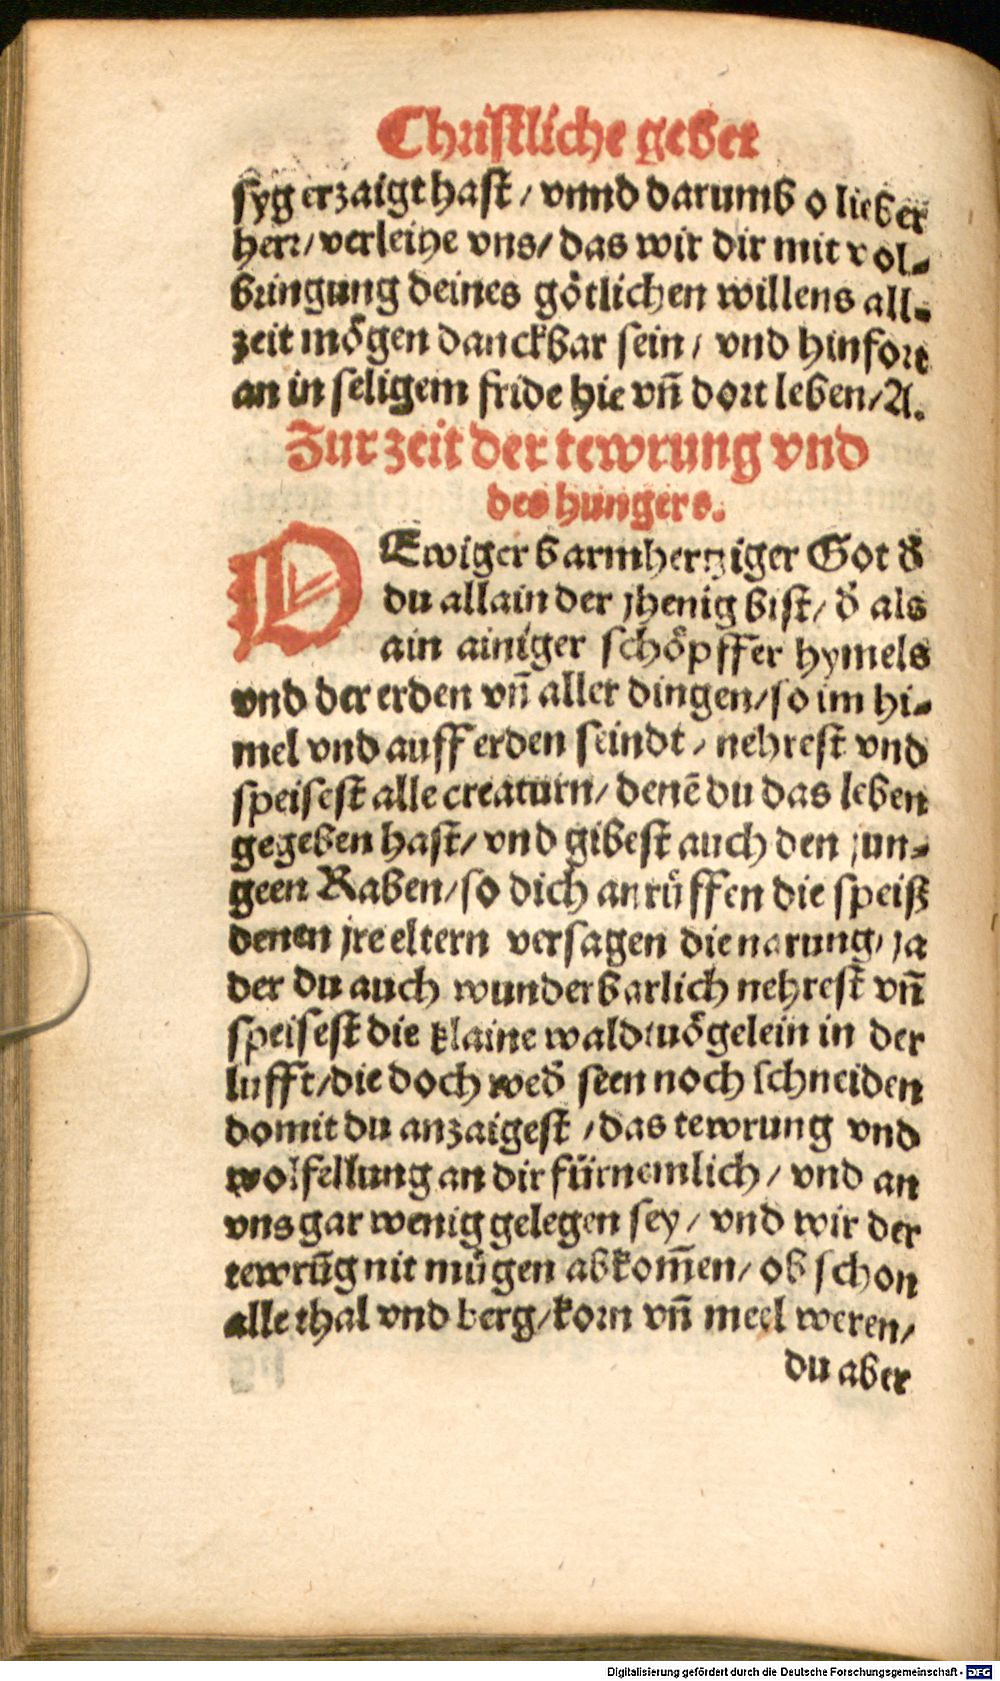 Christliche gebet
syg erzaigt hast / vnnd darumb o lieber
herr / verleihe vns / das wir dir mit vol⸗
bringung deines götlichen willens all⸗
zeit mögen danckbar sein / vnd hinfort
an in seligem fride hie vñ dort leben / A.
Zur zeit der tewrung vnd
des hungers.
O Ewiger barmhertziger Got d̕
du allain der jhenig bist / d̕ als
ain ainiger schöpffer hymels
vnd der erden vñ aller dingen / so im hi⸗
mel vnd auff erden seindt / nehrest vnd
speisest alle creaturn / denē du das leben
gegeben hast / vnd gibest auch den jun⸗
geen Raben / so dich anrüffen die speiß
denen jre eltern versagen die narung / ja
der du auch wunderbarlich nehrest vñ
speisest die klaine waldtuögelein in der
lufft / die doch wed̕ seen noch schneiden
domit du anzaigest / das tewrung vnd
wolfellung an dir fürnemlich / vnd an
vns gar wenig gelegen sey / vnd wir der
tewrūg nit mügen abkom̄en / ob schon
alle thal vnd berg / korn vñ meel weren /
du aber
Digitalisierung gefördert durch die Deutsche Forschungsgemeinschaft - DFG